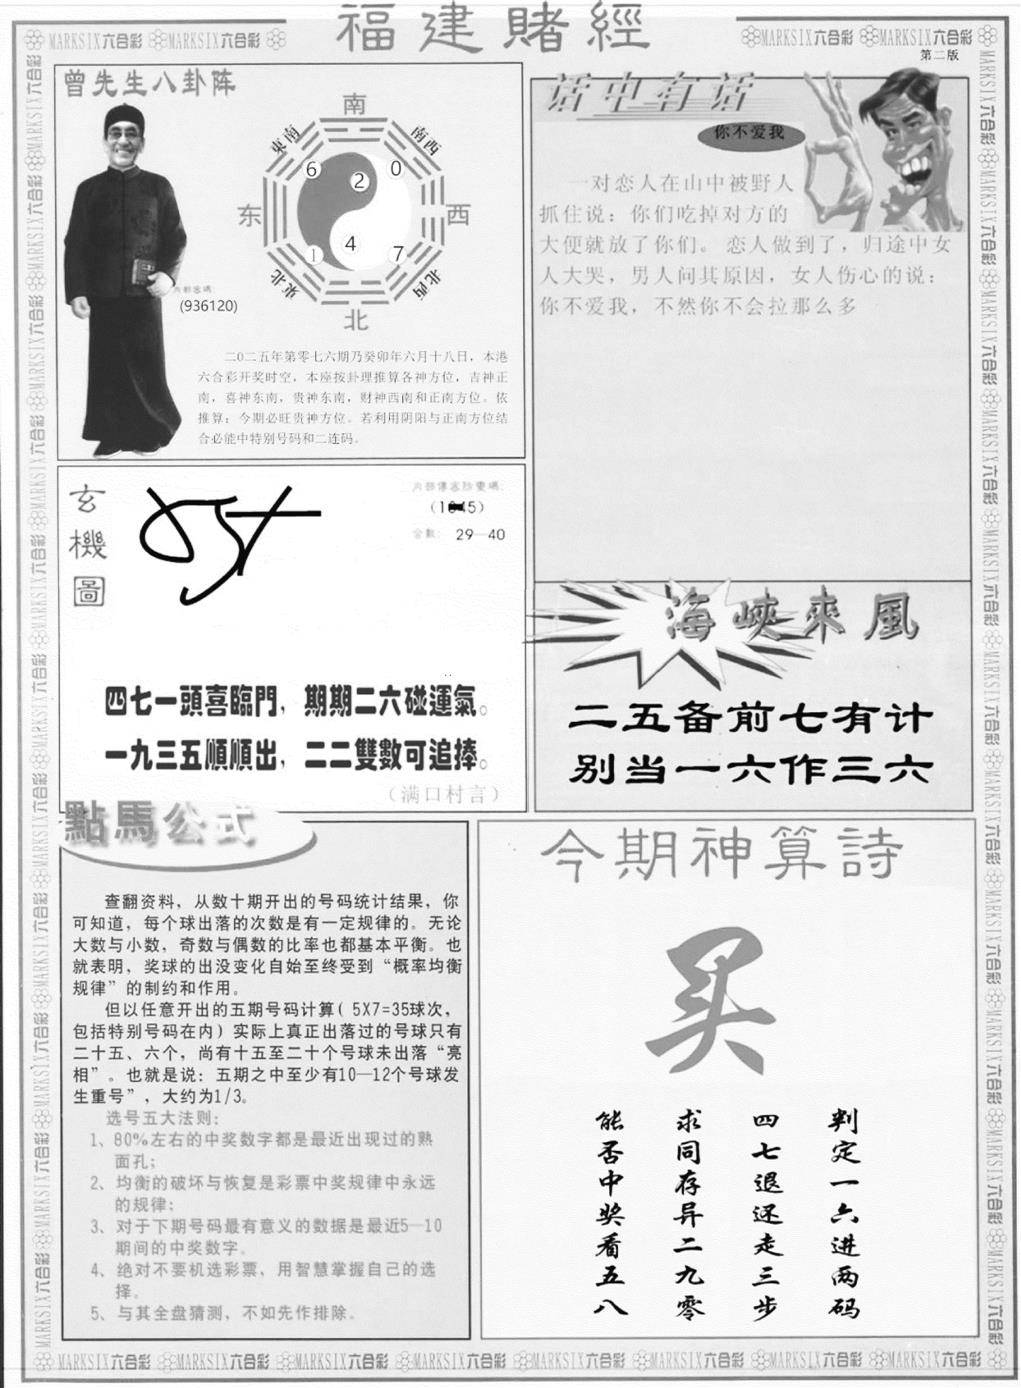 福建賭經
MARKSIX六合彩 MARKSIX六合彩
MARKSIX六合彩 MARKSIX六合彩
第二版
曾先生八卦阵
南
東南
南西
6
2
0
东
西
1
4
7
東北
北西
北
内部密碼:
(936120)
二0二五年第零七六期乃癸卯年六月十八日，本港
六合彩开奖时空，本座按卦理推算各神方位，吉神正
南，喜神东南，贵神东南，财神西南和正南方位。依
推算：今期必旺贵神方位。若利用阴阳与正南方位结
合必能中特别号码和二连码。
话中有话
你不爱我
一对恋人在山中被野人
抓住说：你们吃掉对方的
大便就放了你们。恋人做到了，归途中女
人大哭，男人问其原因，女人伤心的说：
你不爱我，不然你不会拉那么多
玄機圖
合數: 29—40
四七一頭喜臨門，期期二六碰運氣。
一九三五順順出，二二雙數可追捧。
（满口村言）
海峽來風
二五备前七有计
别当一六作三六
點馬公式
查翻资料，从数十期开出的号码统计结果，你
可知道，每个球出落的次数是有一定规律的。无论
大数与小数，奇数与偶数的比率也都基本平衡。也
就表明，奖球的出没变化自始至终受到“概率均衡
规律”的制约和作用。
但以任意开出的五期号码计算( 5X7=35球次，
包括特别号码在内) 实际上真正出落过的号球只有
二十五、六个，尚有十五至二十个号球未出落“亮
相”。也就是说：五期之中至少有10—12个号球发
生重号”，大约为1/3。
选号五大法则:
1、80%左右的中奖数字都是最近出现过的熟
面孔;
2、均衡的破坏与恢复是彩票中奖规律中永远
的规律;
3、对于下期号码最有意义的数据是最近5—10
期间的中奖数字。
4、绝对不要机选彩票，用智慧掌握自己的选
择。
5、与其全盘猜测，不如先作排除。
今期神算詩
买
判定一六进两码
四七退还走三步
求同存异二九零
能否中奖看五八
MARKSIX六合彩 MARKSIX六合彩 MARKSIX六合彩 MARKSIX六合彩 MARKSIX六合彩 MARKSIX六合彩 MARKSIX六合彩 MARKSIX六合彩